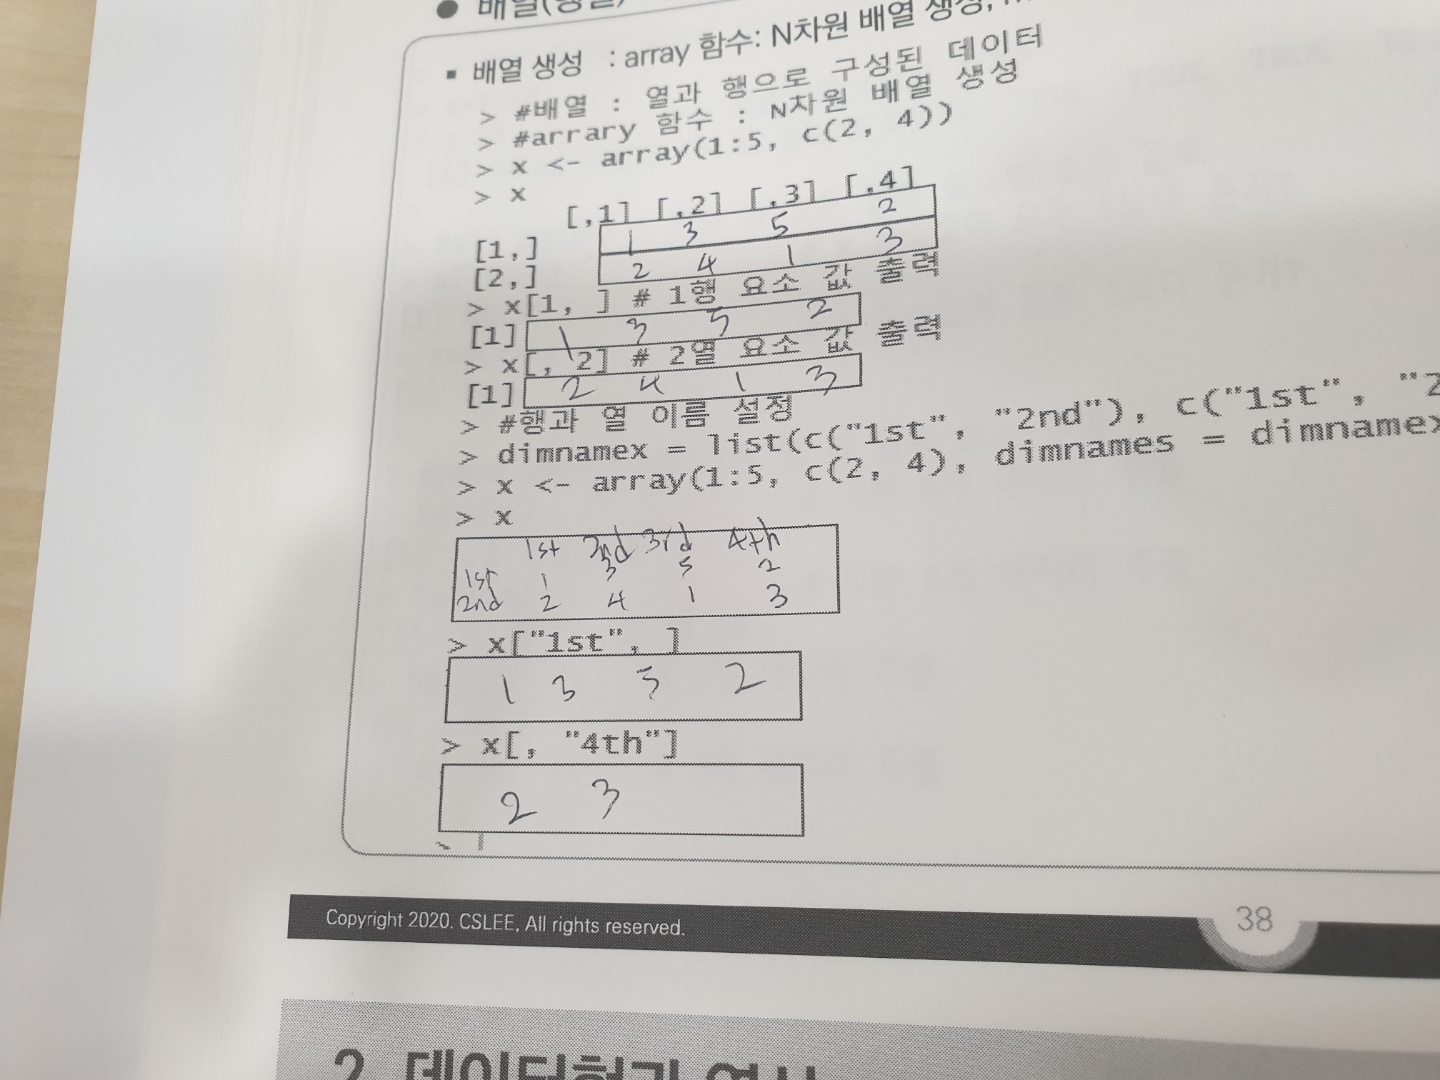 ● 배열(행렬)
▪ 배열 생성 : array 함수: N차원 배열 생성,
> #배열 : 열과 행으로 구성된 데이터
> #arrary 함수 : N차원 배열 생성
> x <- array(1:5, c(2, 4))
> x
[,1] [,2] [,3] [,4]
[1,] 1 3 5 2
[2,] 2 4 1 3
> x[1, ] # 1행 요소 값 출력
[1] 1 3 5 2
> x[, 2] # 2열 요소 값 출력
[1] 2 4 1 3
> #행과 열 이름 설정
> dimnamex = list(c("1st", "2nd"), c("1st", "2
> x <- array(1:5, c(2, 4), dimnames = dimnamex
> x
1st 2nd 3rd 4th
1st 1 3 5 2
2nd 2 4 1 3
> x["1st", ]
1 3 5 2
> x[, "4th"]
2 3
>
Copyright 2020. CSLEE, All rights reserved.
38
2. 데이터형과 연산